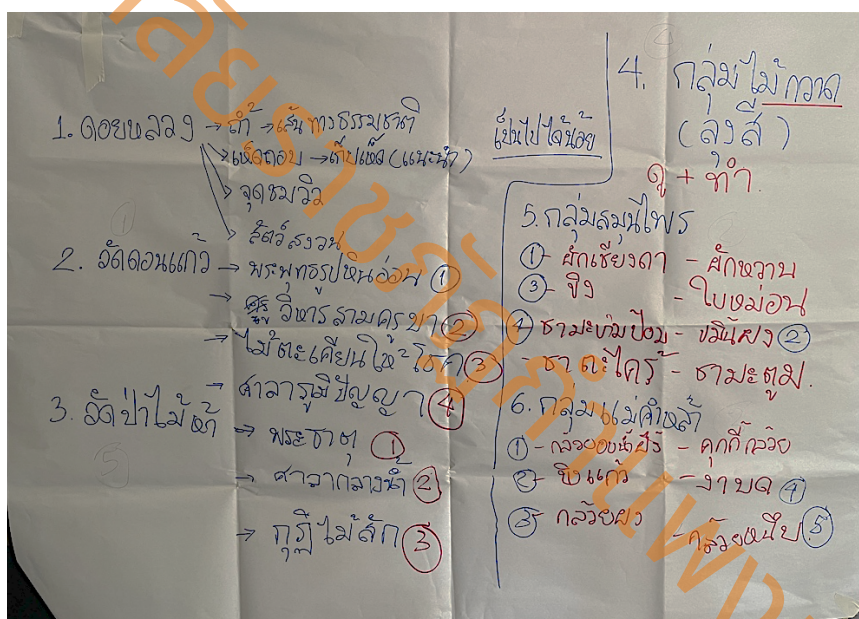 1. ดอยหลวง → ถ้ำ → เส้นทางธรรมชาติ
→ เห็ดถอบ → เก็บเห็ด (แนะนำ)
→ จุดชมวิว
→ สัตว์สงวน
2. วัดดอนแก้ว → พระพุทธรูปหินอ่อน ①
→ วิหารสามครูบา ②
→ ไม้ตะเคียนให้โชค ③
→ ศาลาภูมิปัญญา ④
3. วัดป่าไม้ห้า → พระธาตุ ①
→ ศาลากลางน้ำ ②
→ กุฏิไม้สัก ③
เป็นไปได้น้อย
4. กลุ่มไม้กวาด
(ลุงสี)
ดู + ทำ
5. กลุ่มสมุนไพร
① - ผักเชียงดา - ผักหวาน
③ - ขิง - ใบหม่อน
④ ชามะขามป้อม - ขมิ้นผง ②
- ชาตะไคร้ - ชามะตูม.
6. กลุ่มแม่คำหล้า
① - กล้วยอบน้ำผึ้ง - คุกกี้กล้วย
② - ขิงแก้ว - งาบด ④
③ - กล้วยผง - กล้วยหนึบ ⑤